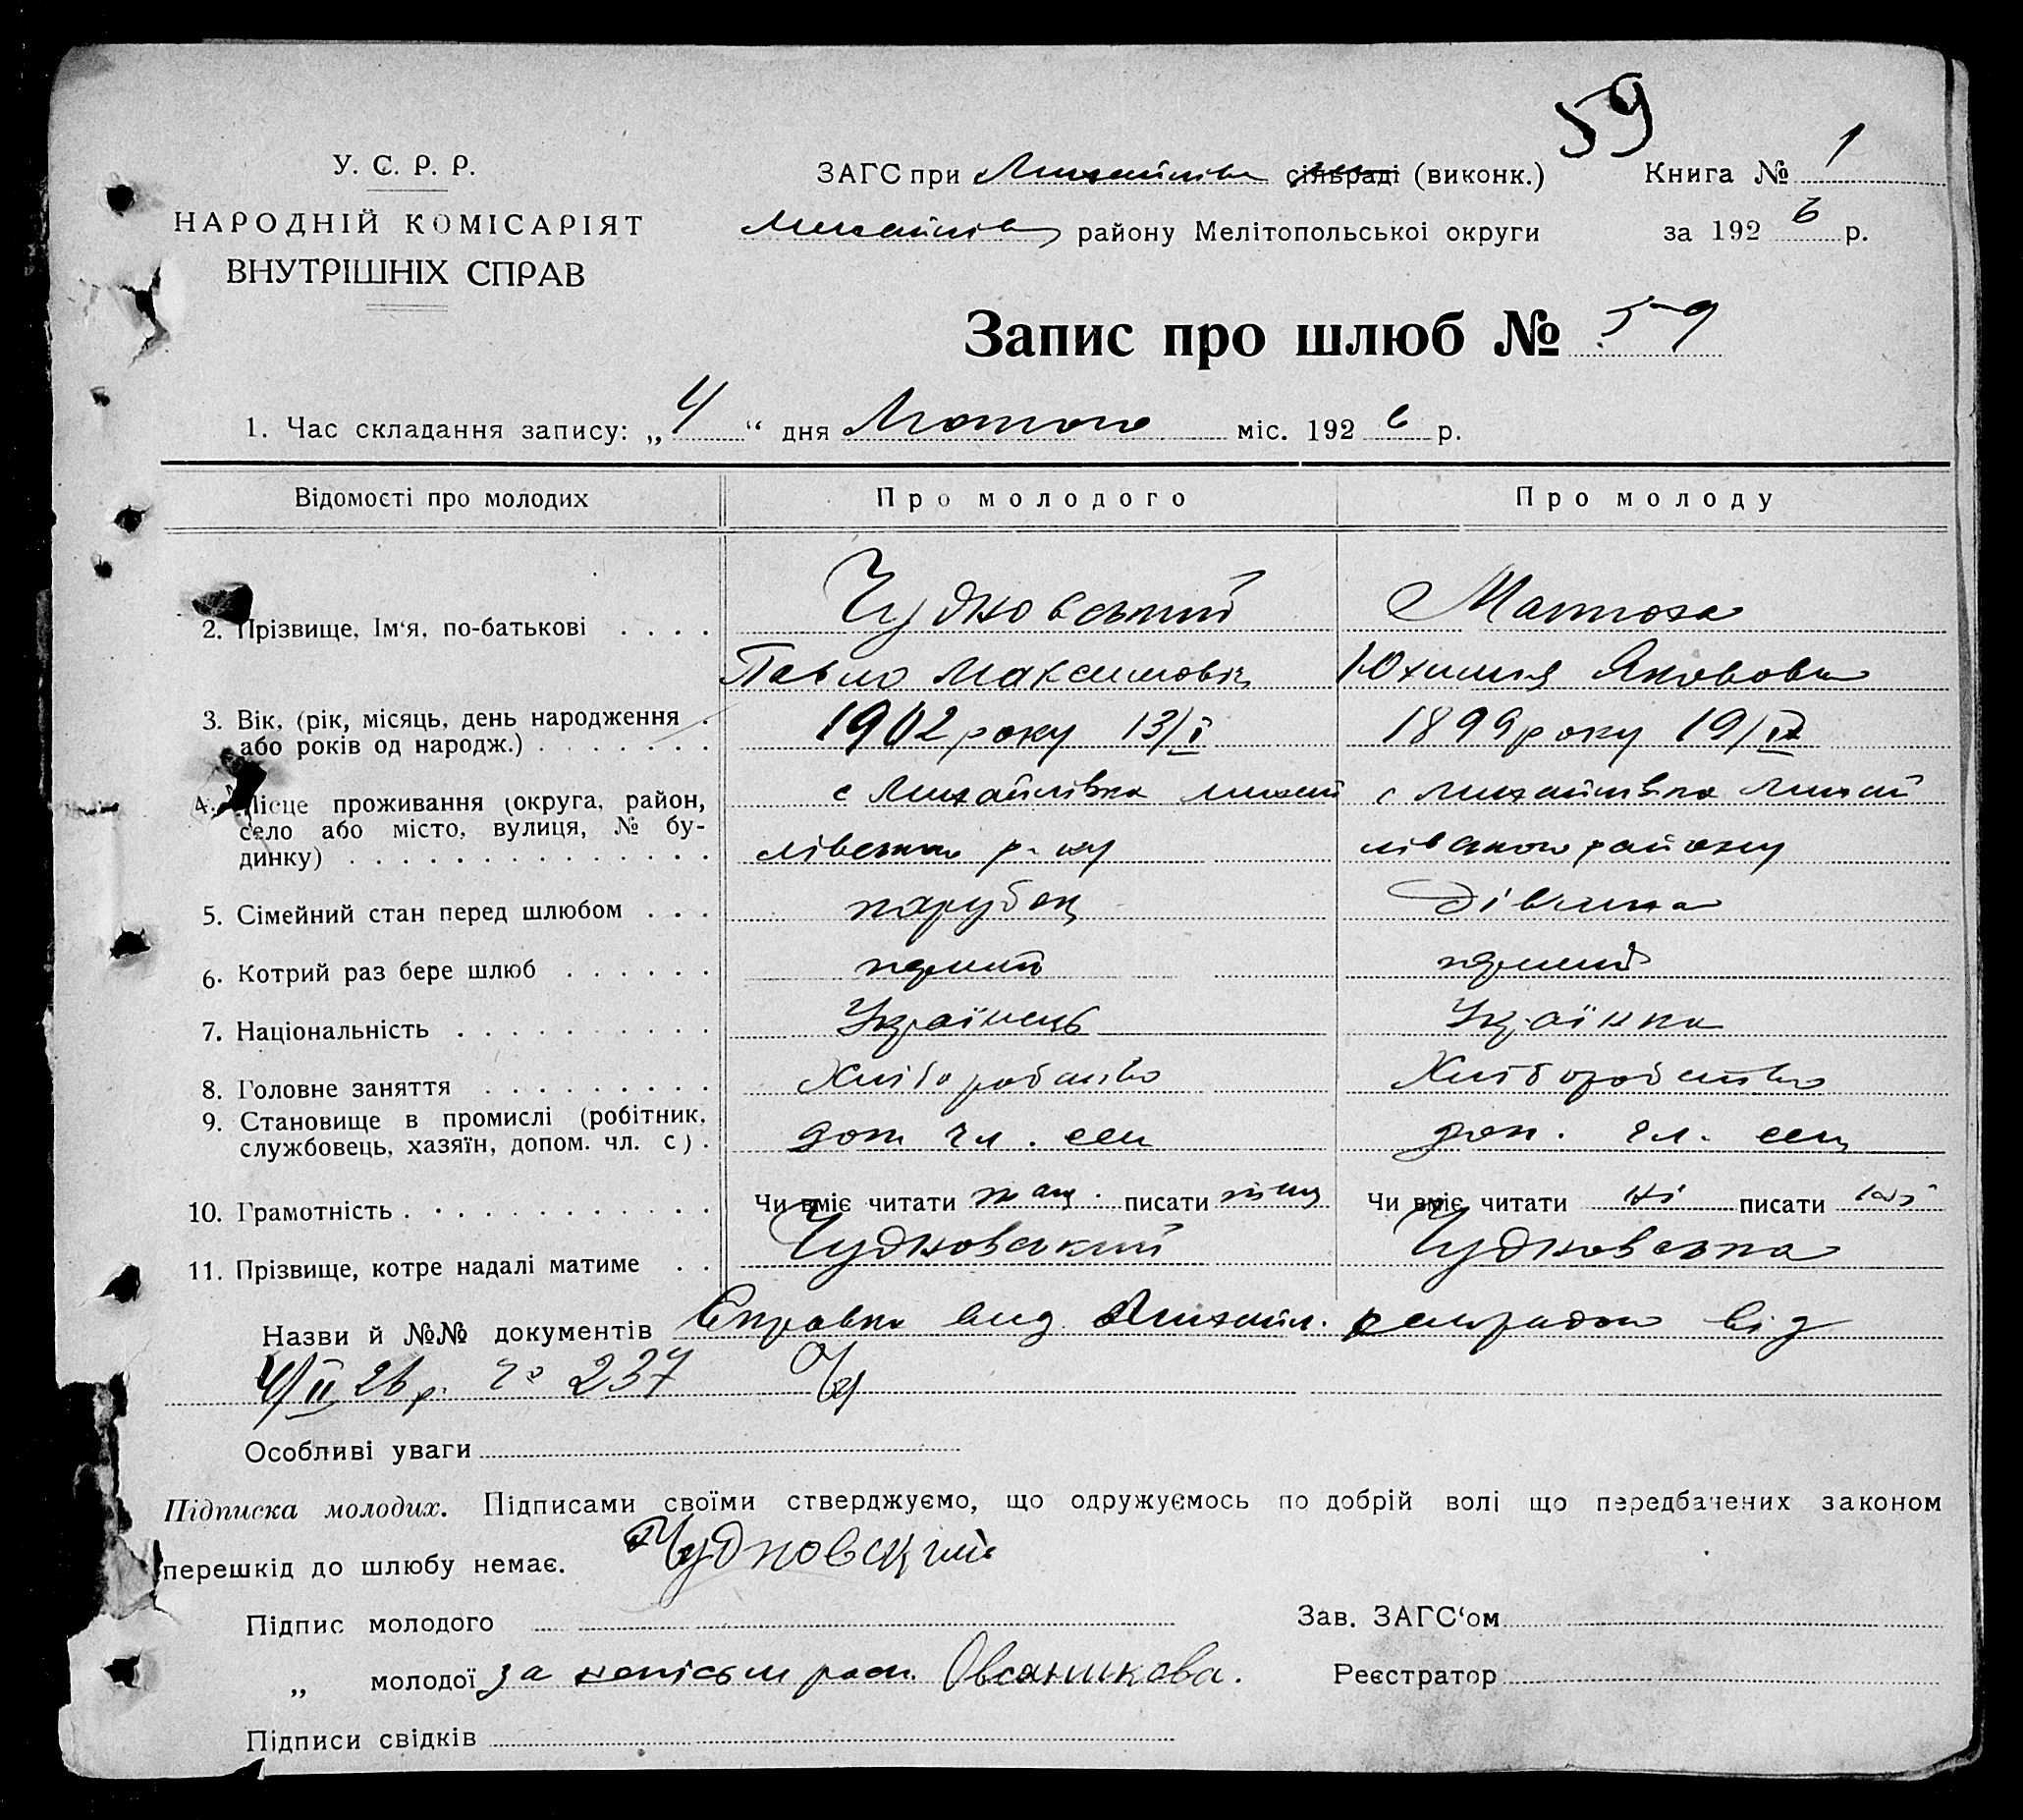 59
У. С. Р. Р.
НАРОДНІЙ КОМІСАРІЯТ
ВНУТРІШНІХ СПРАВ
ЗАГС при Михайлівс сільраді (виконк.) Книга № 1
Михайлівс району Мелітопольської округи за 1926 р.
Запис про шлюб № 59
1. Час складання запису: „4“ дня Лютого міс. 1926 р.
Відомості про молодих Про молодого Про молоду
2. Прізвище, Ім‘я, по-батькові . . . . Чудновський Матюха
Павло Максимовіч Юхимия Якововна
3. Вік, (рік, місяць, день народження . 1902 року 13/I 1899 року 19/IX
або років од народж.) . . . . . . .
4. Місце проживання (округа, район, с Михайлівка Михай с Михайлівка Михай
село або місто, вулиця, № бу-
динку) . . . . . . . . . . . . . . лівського р-ну лівського району
5. Сімейний стан перед шлюбом . . . парубок дівчина
6. Котрий раз бере шлюб . . . . . . перший перший
7. Національність . . . . . . . . . . Українець Українка
8. Головне заняття . . . . . . . . . Хліборобство Хліборобство
9. Становище в промислі (робітник,
службовець, хазяїн, допом. чл. с) . доп чл. сем доп. чл. сем
10. Грамотність . . . . . . . . . . . . Чи вміє читати писати Чи вміє читати ні писати ні
11. Прізвище, котре надалі матиме . . Чудновський Чудновська
Назви й №№ документів Справка вид Михайл. від
4/II 26 р. чо 237
Особливі уваги
Підписка молодих. Підписами своїми стверджуємо, що одружуємось по добрій волі що передбачених законом
перешкід до шлюбу немає. Чудновский
Підпис молодого Зав. ЗАГС‘ом
„ молодої за непісьм расп. Овсяникова. Реєстратор
Підписи свідків